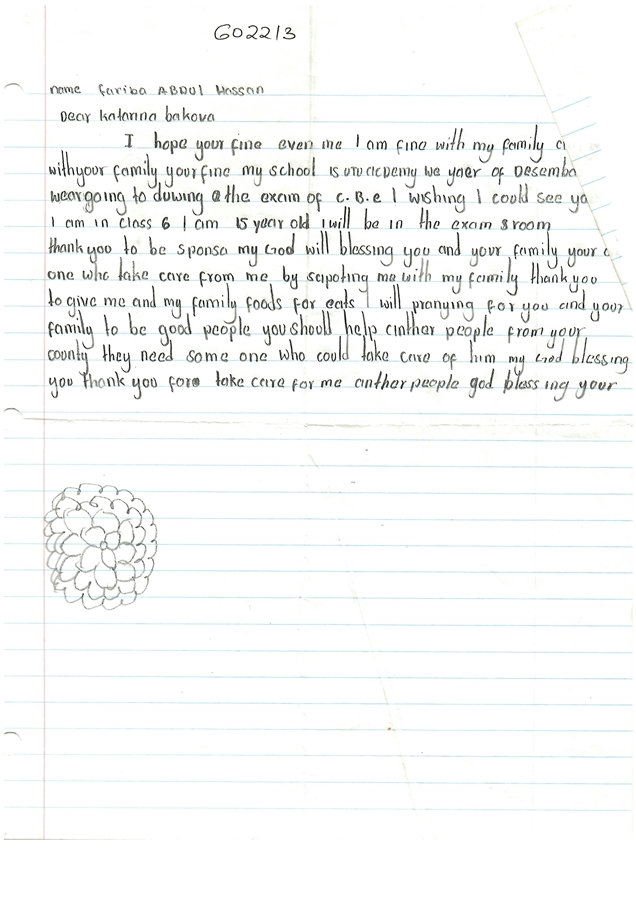 GO22/3
name Fariba ABDUl Hassan
Dear Katarina bakova
I hope your fine even me I am fine with my family a
withyour family your fine my school is academy we yaer of Desemba
weargoing to duwing a the exam of c.B.e I wishing I could see yo
I am in class 6 I am 15 year old I will be in the exam 8 room
thank you to be sponsa my God will blessing you and your family your
one who take care from me by sapoting me with my family thank you
to give me and my family foods for eats I will pranying for you and your
family to be good people you should help anther people from your
county they need some one who could take care of him my God blessing
you thank you fore take care for me anther people god bless ing your